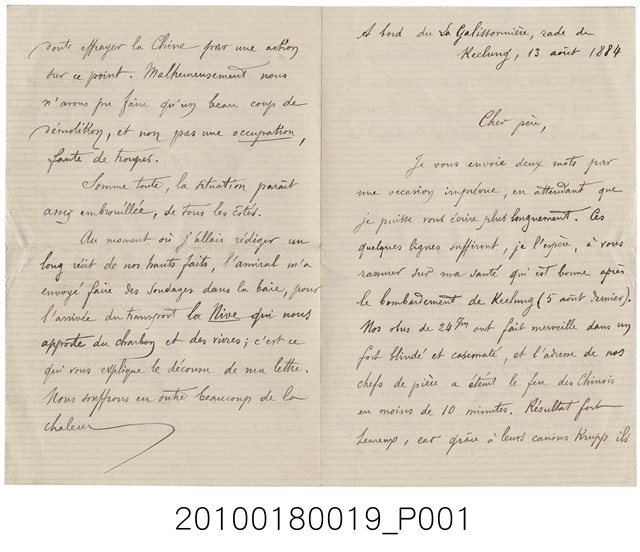 A bord du La Galissonnière, rade de
Keelung, 13 août 1884
Cher père,
Je vous envoie deux mots par
une occasion imprévue, en attendant que
je puisse vous écrire plus longuement. Ces
quelques lignes suffiront, je l'espère, à vous
rassurer sur ma santé qui est bonne après
le bombardement de Keelung (5 août dernier).
Nos obus de 24 c/m ont fait merveille dans un
fort blindé et casematé, et l'adresse de nos
chefs de pièce a éteint le feu des Chinois
en moins de 10 minutes. Résultat fort
heureux, car grâce à leurs canons Krupp ils
doute effrayer la Chine par une action
sur ce point. Malheureusement nous
n'avons pu faire qu'un beau coup de
démolition, et non pas une occupation,
faute de troupes.
Somme toute, la situation paraît
assez embrouillée, de tous les côtés.
Au moment où j'allais rédiger un
long récit de nos hauts faits, l'amiral m'a
envoyé faire des sondages dans la baie, pour
l'arrivée du transport la Nive qui nous
apporte du charbon et des vivres ; c'est ce
qui vous explique le décousu de ma lettre.
Nous souffrons en outre beaucoup de la
chaleur
20100180019_P001